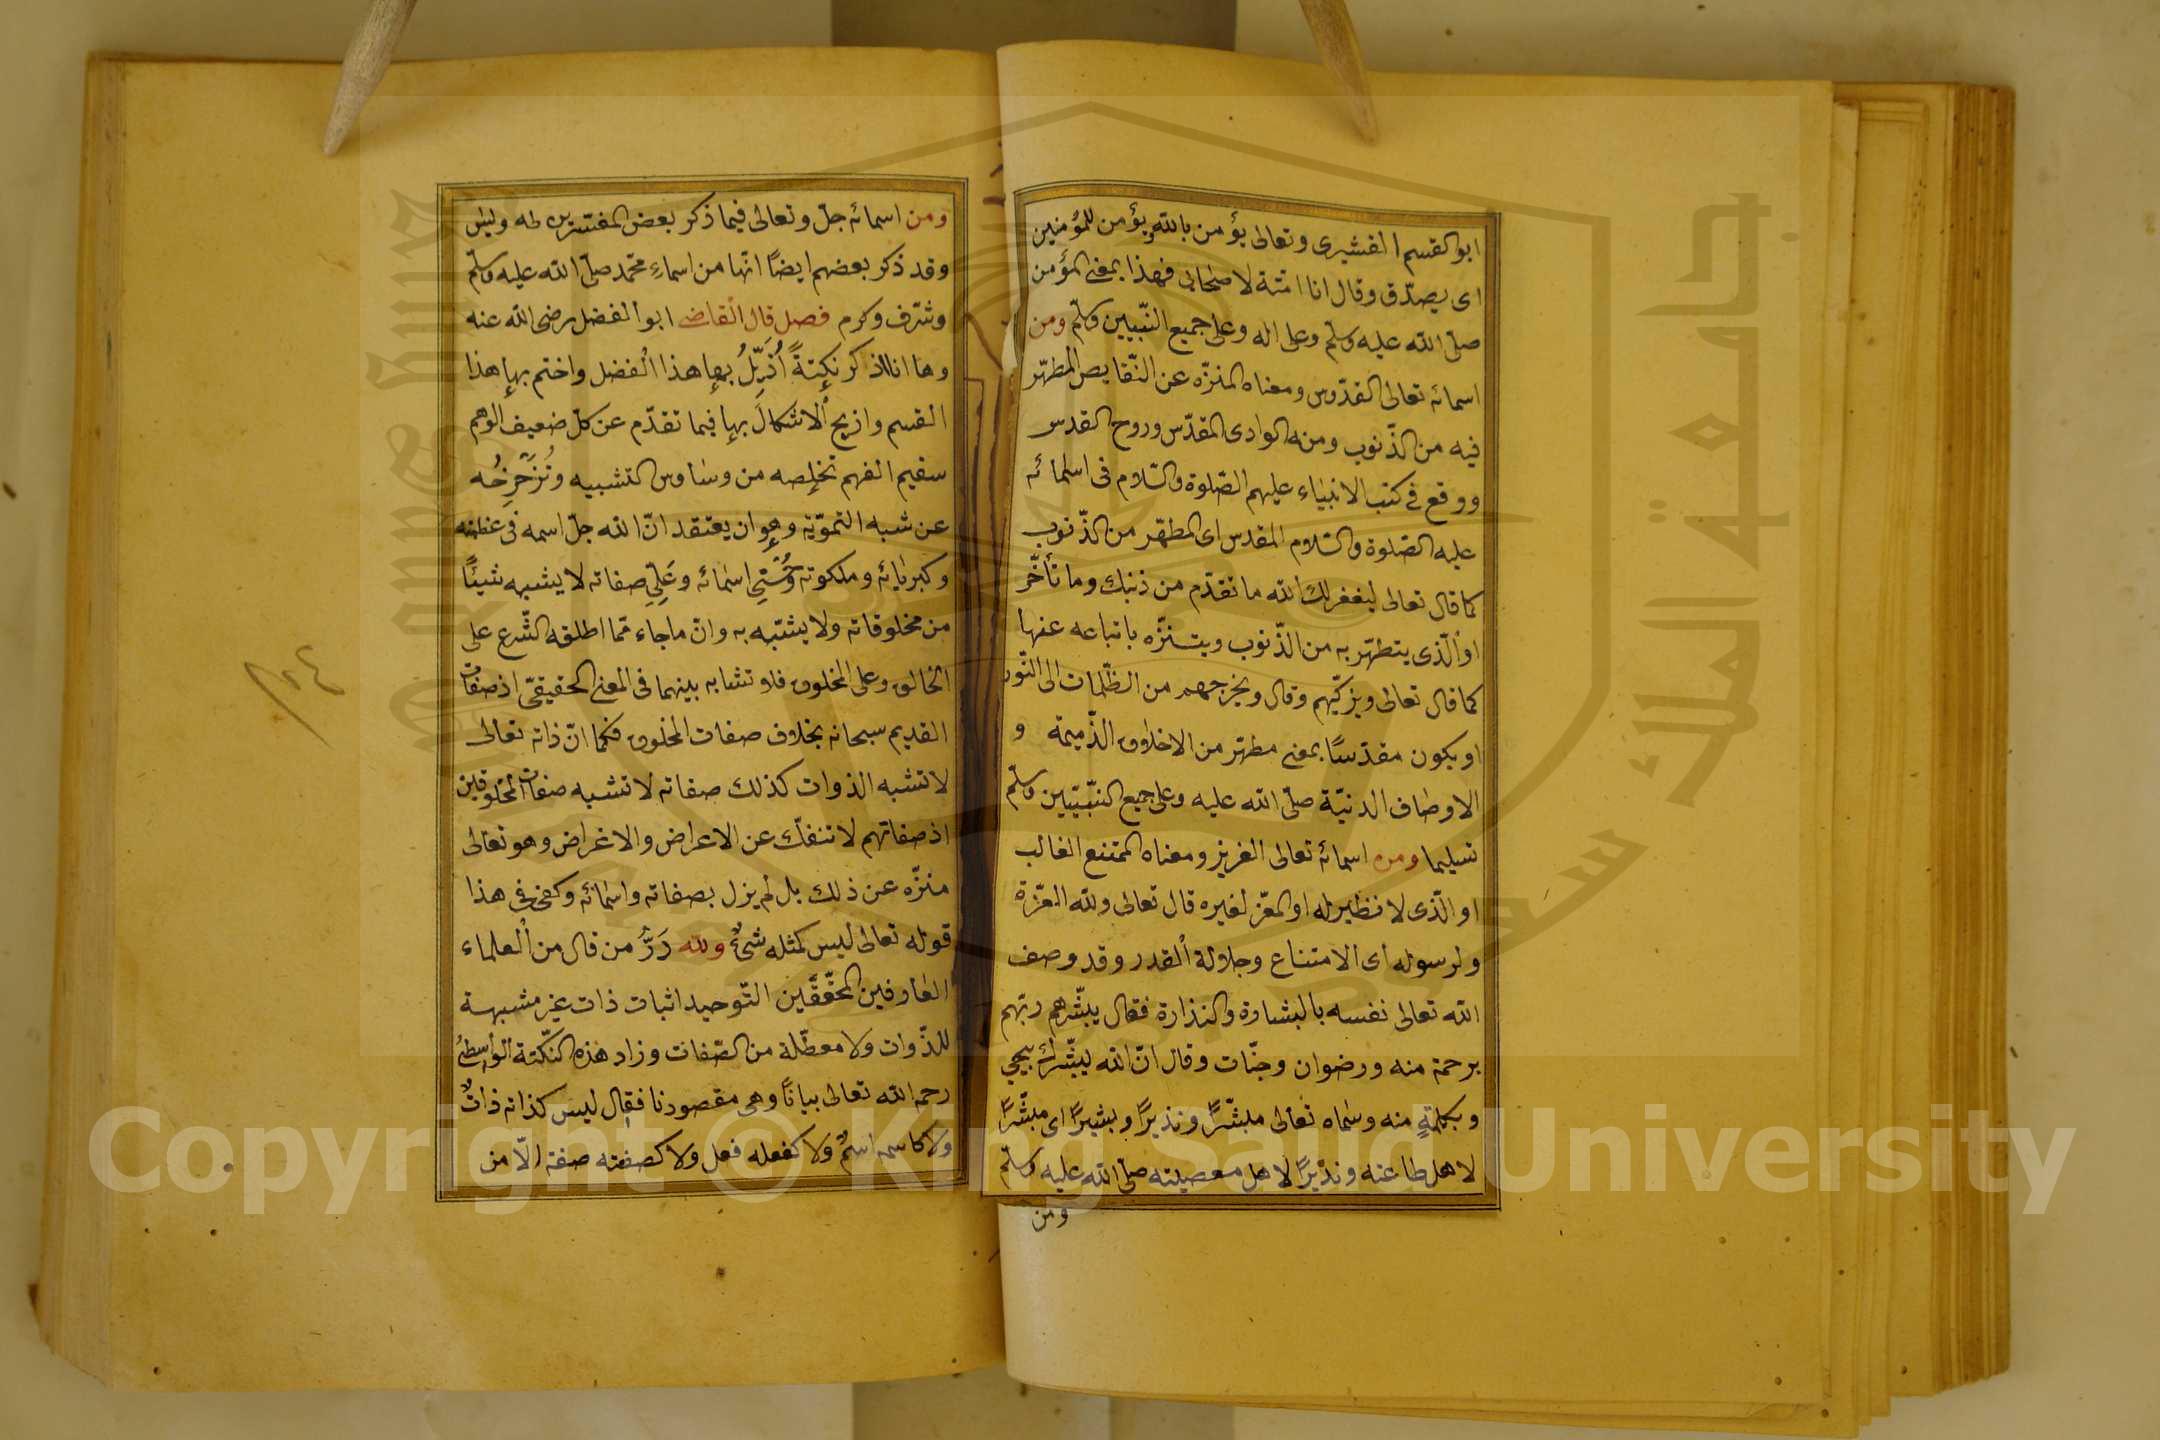 ابو القسم القشيرى وتعالى يؤمن بالله ويؤمن للمؤمنين
اى يصدّق وقال انا امنة لاصحابى فهذا بمعنى المؤمن
صلّى الله عليه وسلّم وعلى اله وعلى جميع النّبيين وسلّم ومن
اسمائه تعالى القدّوس ومعناه المنزّه عن النّقايص المطهّر
فيه من الذّنوب ومنه الوادى المقدّس وروح القدس
ووقع فى كتب الانبياء عليهم الصّلوة والسّلام فى اسمائه
عليه الصّلوة والسّلام المقدس اى المطهّر من الذّنوب
كما قال تعالى ليغفر لك الله ما تقدّم من ذنبك وما تأخّر
او الّذى يتطهّر به من الذّنوب ويتنزّه باتباعه عنها
كما قال تعالى ويزكّيهم وقال ويخرجهم من الظّلمات الى النّور
او يكون مقدّسًا بمعنى مطهّر من الاخلاق الذّميمة و
الاوصاف الدنيّة صلّى الله عليه وعلى جميع النّبيّين وسلّم
تسليما ومن اسمائه تعالى العزيز ومعناه الممتنع الغالب
او الّذى لا نظير له او المعزّ لغيره قال تعالى ولله العزّة
ولرسوله اى الامتناع وجلالة القدر وقد وصف
الله تعالى نفسه بالبشارة والنذارة فقال يبشّرهم ربّهم
برحمة منه ورضوان وجنّات وقال انّ الله يبشّرك بيحيى
وبكلمةٍ منه وسمّاه تعالى مبشّرًا ونذيرًا وبشيرًا اى مبشّرًا
لاهل طاعته ونذيرًا لاهل معصيته صلّى الله عليه وسلّم
ومن
ومن اسمائه جلّ وتعالى فيما ذكر بعض المفسّرين طه ويس
وقد ذكر بعضهم ايضًا انّها من اسماء محمّد صلّى الله عليه وسلّم
وشرّف وكرم فصل قال القاضى ابو الفضل رضى الله عنه
وها انا اذكر نكتةً أُذَيِّلُ بها هذا الفضل واختم بها هذا
القسم وازيح الاشكالَ بها فيما تقدّم عن كلّ ضعيف الوهم
سقيم الفهم تخلصه من وساوس التشبيه وتُزَحْزِحُه
عن شبه التمويه وهو ان يعتقد انّ الله جلّ اسمه فى عظمته
وكبريائه وملكوته وحُسْنى اسمائه وعَلِيّ صفاته لا يشبه شيئًا
من مخلوقاته ولا يشبّه به وانّ ما جاء ممّا اطلقه الشّرع على
الخالق وعلى المخلوق فلا تشابه بينهما فى المعنى الحقيقىّ اذ صفاتُ
القديم سبحانه بخلاف صفات المخلوق فكما انّ ذاته تعالى
لا تشبه الذوات كذلك صفاته لا تشبه صفات المخلوقين
اذ صفاتهم لا تنفكّ عن الاعراض والاغراض وهو تعالى
منزّه عن ذلك بل لم يزل بصفاته واسمائه وكفى فى هذا
قوله تعالى ليس كمثله شىءٌ ولله دَرُّ من قال من العلماء
العارفين المحقّقين التّوحيد اثبات ذات غير مشبهة
للذّوات ولا معطّلة من الصّفات وزاد هذه النكتة الواسطىُّ
رحمه الله تعالى بيانًا وهى مقصودنا فقال ليس كذاته ذاتٌ
ولا كاسمه اسمٌ ولا كفعله فعل ولا كصفته صفة الّا من
جامعة الملك سعود
King Saud University
Copyright © King Saud University